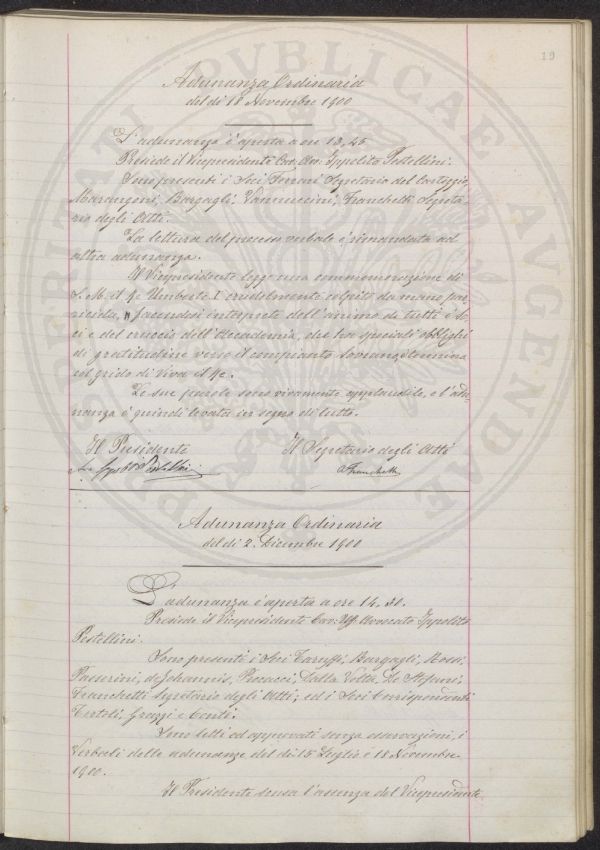 19
Adunanza Ordinaria
del dì 18 Novembre 1900
L'adunanza è aperta a ore 13,45
Presiede il Vicepresidente Cav. Avv. Ippolito Pestellini.
Sono presenti i Soci Ferrari Segretario del Carteggio,
Marangoni, Bargagli, Vannuccini, Franchetti Segreta-
rio degli Atti.
La lettura del processo verbale è rimandata ad
altra adunanza.
Il Vicepresidente legge una commemorazione di
S. M. il Re Umberto I° crudelmente colpito da mano par-
ricida, facendosi interprete dell'animo di tutti i So-
ci e del cruccio dell'Accademia, che ha speciali obblighi
di gratitudine verso il compianto Sovrano, e termina
col grido di Viva il Re.
Le sue parole sono vivamente applaudite, e l'adu-
nanza è quindi levata in segno di lutto.
Il Presidente Il Segretario degli Atti
Ippolito Pestellini A Franchetti
Adunanza Ordinaria
del dì 2. Dicembre 1900
L'adunanza è aperta a ore 14.30.
Presiede il Vicepresidente Cav. Uff. Avvocato Ippolito
Pestellini.
Sono presenti i Soci Taruffi, Bargagli, Rossi,
Passerini, de Johannis, Pucacci, Dalla Volta, De Stefani,
Franchetti Segretario degli Atti; ed i Soci Corrispondenti
Tertoli, Grazzi e Conti.
Sono letti ed approvati senza osservazioni, i
Verbali delle adunanze del dì 15 Luglio e 18 Novembre
1900.
Il Presidente scusa l'assenza del Vicepresidente
PROSPERITATI PVBLICAE AVGENDAE